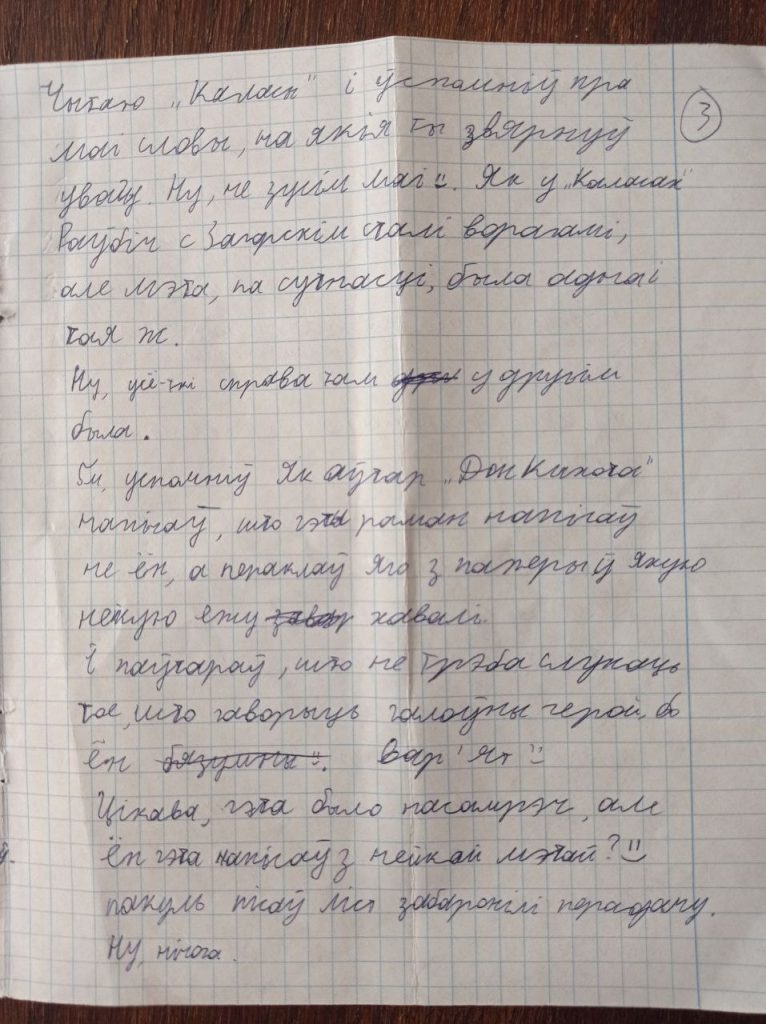 Чытаю „Каласы" і ўспомніў пра
маі словы, на якія ты звярнуў
увагу. Ну, не зусім маі :). Як у „Каласах"
Раўбіч с Загорскім сталі ворагамі,
але мэта, па сутнасці, была адна і
тая ж.
Ну, усё-ткі справа там у другім
была.
успомніў як аўтар „Дон Кихота"
напісаў, што гэты раман напісаў
не ён, а пераклаў яго з паперы ў якую
нейкую ежу хавалі.
І паўтараў, што не трэба слухаць
тое, што гаворыць галоўны герой, бо
ён бязумны :). Вар'ят :)
Цікава, гэта было насамрэч, але
ён гэта напісаў з нейкай мэтай? :)
пакуль пісаў ліст забаранілі перадачу.
Ну, нічога.
3